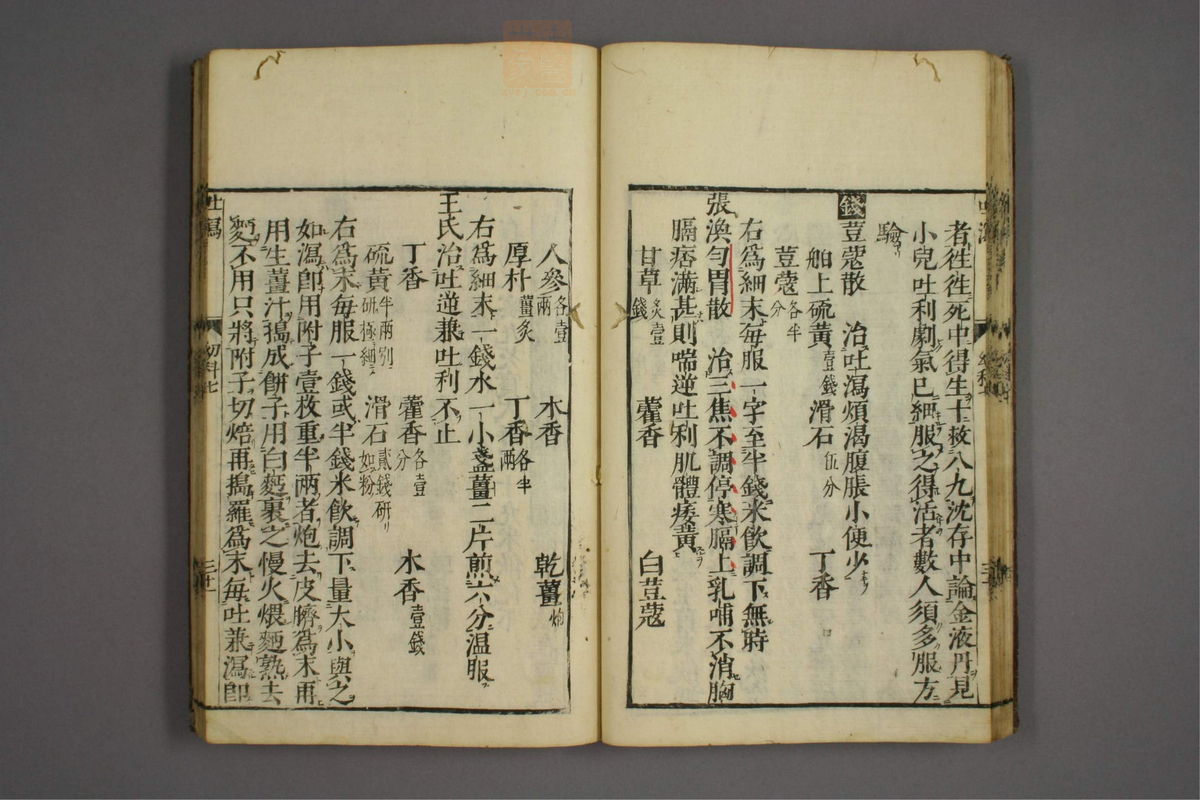 者徃徃死中得生十救八九沈存中論金液丹見
小兒吐利劇氣已絕服之得活者數人須多服方
驗
錢荳蔻散 治吐瀉煩渴腹脹小便少
舶上硫黃壹錢 滑石伍分 丁香
荳蔻各半分
右爲細末每服一字至半錢米飲調下無時
張渙勻胃散 治三焦不調停寒膈上乳哺不消胸
膈痞滿甚則喘逆吐利肌體痿黃
甘草炙壹錢 藿香 白荳蔻
人參各壹兩 木香 乾薑炮
厚朴薑炙 丁香各半兩
右爲細末一錢水一小盞薑二片煎六分温服
王氏治吐逆兼吐利不止
丁香 藿香各壹分 木香壹錢
硫黃半兩別研極細 滑石貳錢研如粉
右爲末每服一錢或半錢米飲調下量大小與之
如瀉卽用附子壹枚重半兩者炮去皮臍爲末再
用生薑汁搗成餅子用白麪裹之慢火煨麪熟去
麪不用只將附子切焙再搗羅爲末每吐兼瀉卽
吐瀉
幼科七